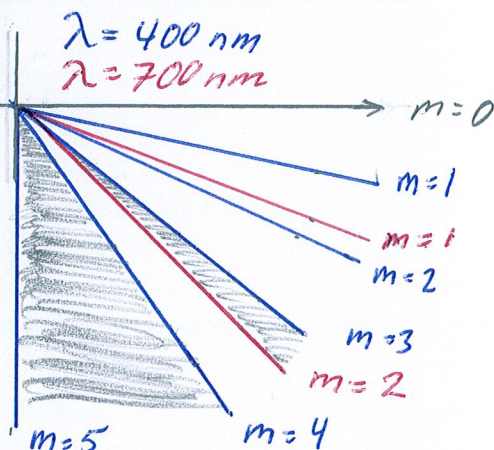 λ = 400 nm
λ = 700 nm
m = 0
m = 1
m = 1
m = 2
m = 3
m = 2
m = 4
m = 5